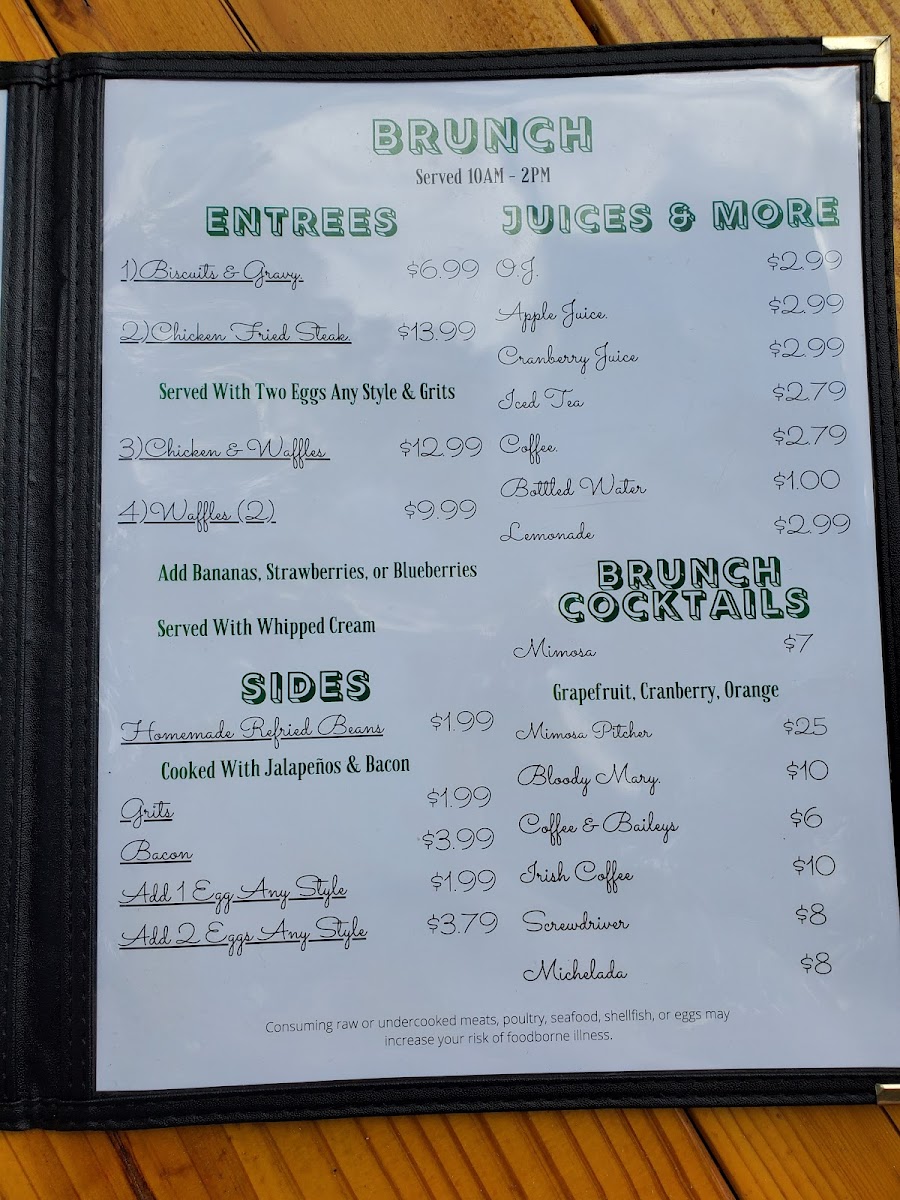 BRUNCH
Served 10AM - 2PM
ENTREES
1) Biscuits & Gravy. $6.99
2) Chicken Fried Steak. $13.99
Served With Two Eggs Any Style & Grits
3) Chicken & Waffles $12.99
4) Waffles (2) $9.99
Add Bananas, Strawberries, or Blueberries
Served With Whipped Cream
SIDES
Homemade Refried Beans $1.99
Cooked With Jalapeños & Bacon
Grits $1.99
Bacon $3.99
Add 1 Egg Any Style $1.99
Add 2 Eggs Any Style $3.79
JUICES & MORE
O.J. $2.99
Apple Juice. $2.99
Cranberry Juice $2.99
Iced Tea $2.79
Coffee. $2.79
Bottled Water $1.00
Lemonade $2.99
BRUNCH
COCKTAILS
Mimosa $7
Grapefruit, Cranberry, Orange
Mimosa Pitcher $25
Bloody Mary. $10
Coffee & Baileys $6
Irish Coffee $10
Screwdriver $8
Michelada $8
Consuming raw or undercooked meats, poultry, seafood, shellfish, or eggs may
increase your risk of foodborne illness.